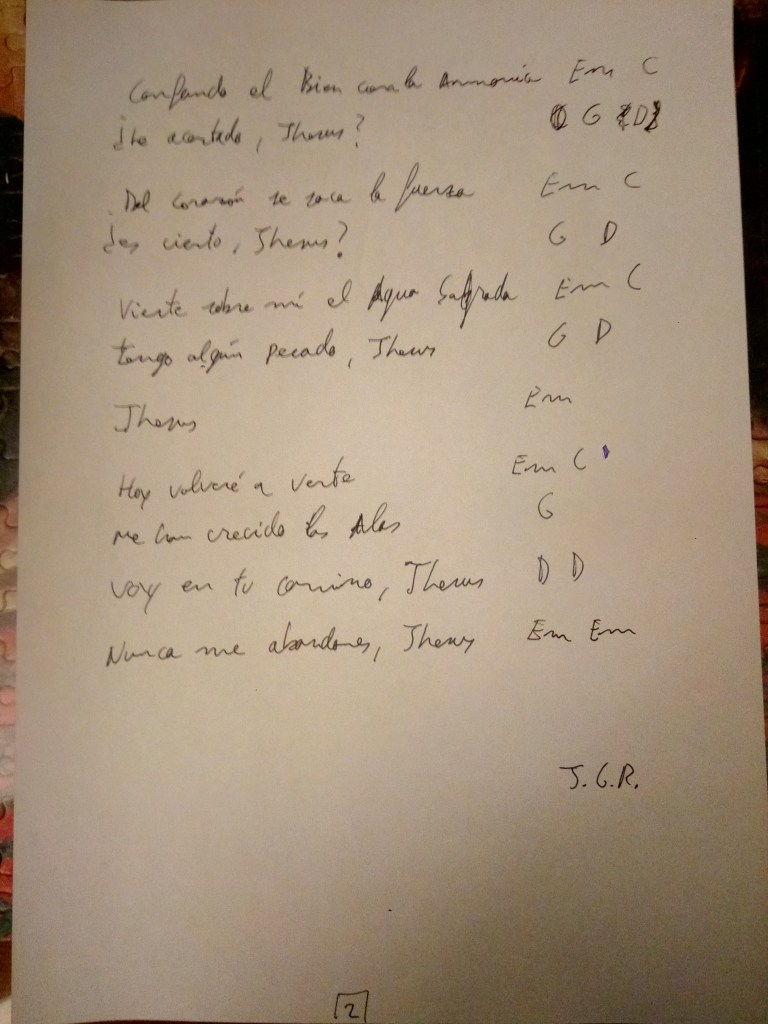 Confundo el Bien con la Armonía Em C
¿he acertado, Jhesus? G D
Del corazón se saca la fuerza Em C
¿es cierto, Jhesus? G D
Vierte sobre mí el Agua Sagrada Em C
tengo algún pecado, Jhesus G D
Jhesus Em
Hoy volveré a verte Em C
me han crecido las Alas G
voy en tu camino, Jhesus D D
Nunca me abandones, Jhesus Em Em
J. G. R.
2